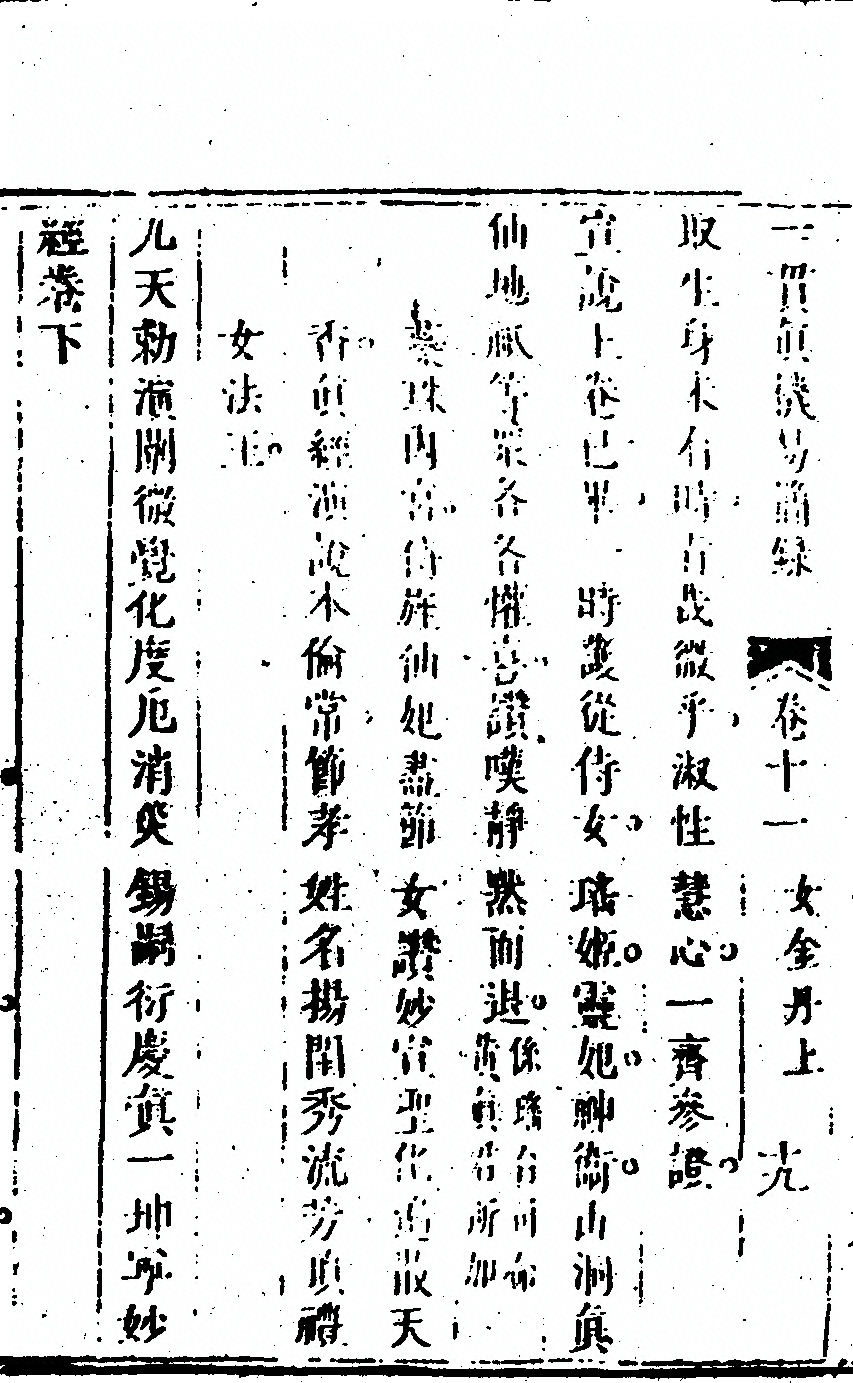 一貫真機易簡錄 卷十一 女金丹上 十九
取生身未有時古哉微乎淑性慧心一齊參證
宣說上卷已畢 時護從侍女瑤姬靈妃神衛山洞真
仙地祇等眾各各懽喜讚嘆靜默而退係瓊台司命黃真君所加
蕊珠內宮侍旌仙妃盡節女讚妙宣聖化遍散天
香真經演說本倫常節孝姓名揚閨秀流芳頂禮
女法王
九天勅演闡微覺化度厄消災錫嗣衍慶真一坤寧妙
經卷下